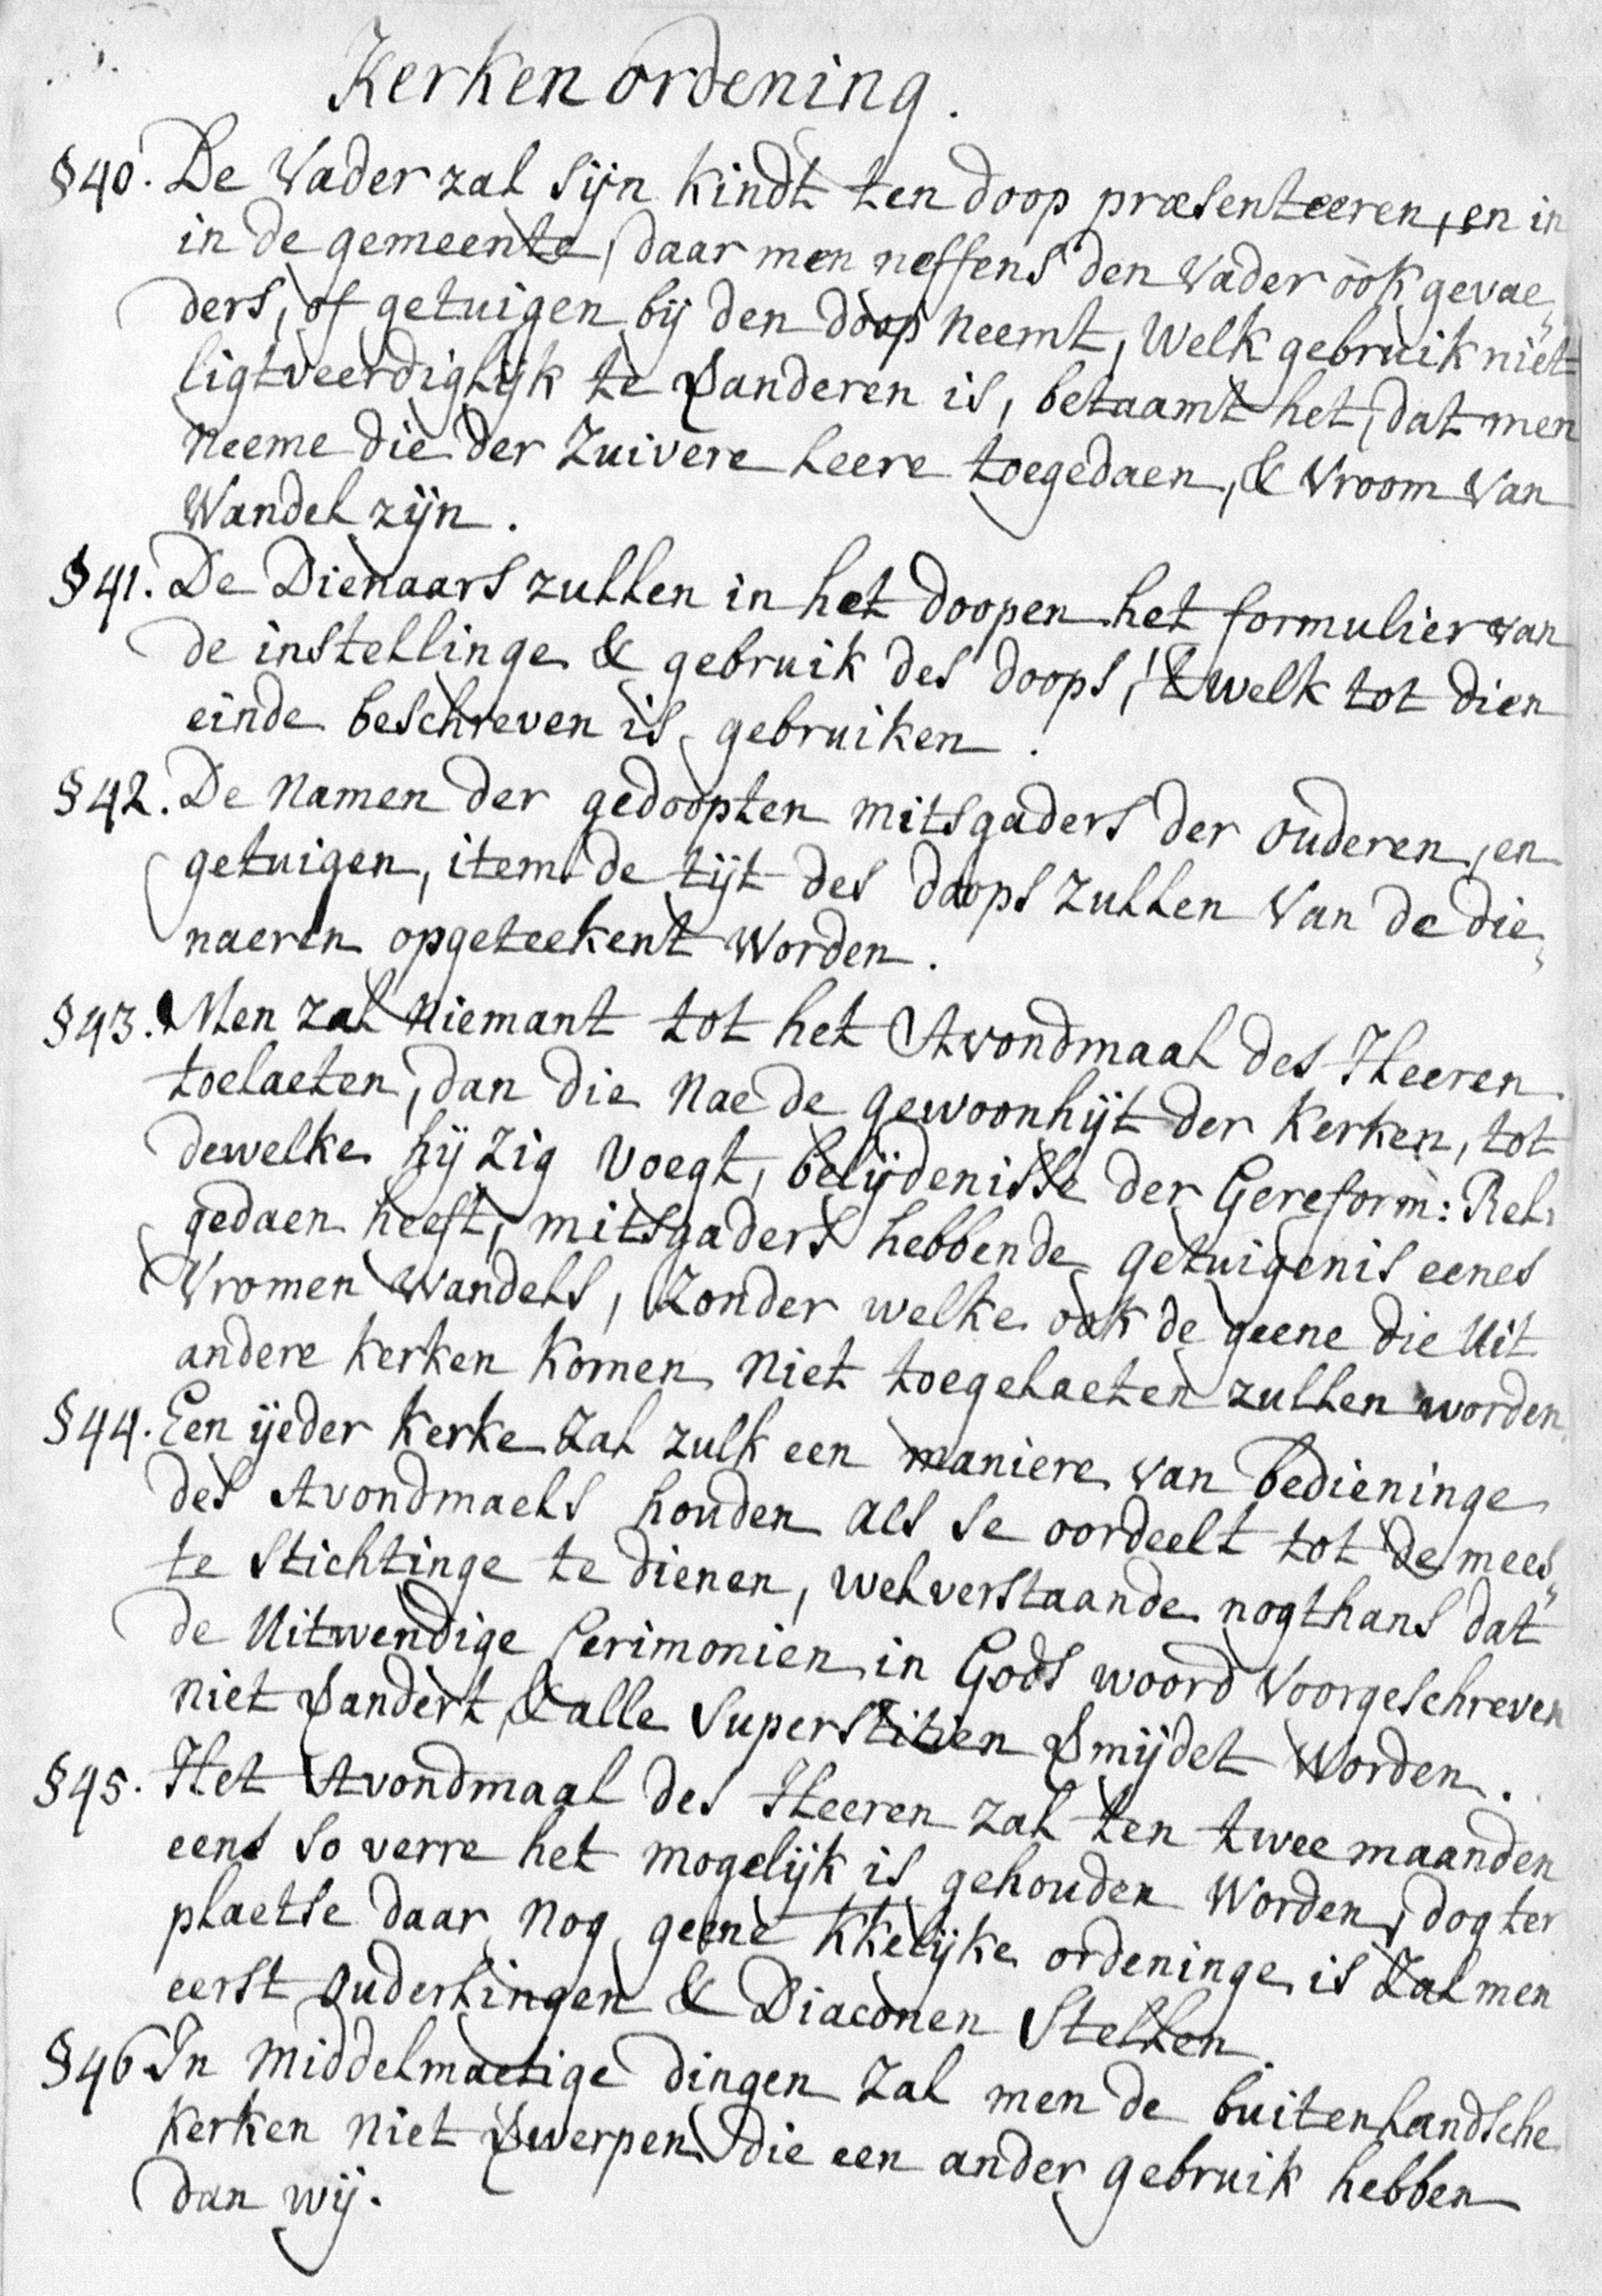 Kerken ordening.
§40. De Vader zal sijn kindt ten doop præsenteeren, en in
in de gemeente, daar men neffens den Vader ook gevae„
ders, of getuigen bij den doop neemt, welk gebruik niet
ligtveerdiglijk te Vanderen is, betaamt het, dat men
neeme die der Zuivere leere toegedaen, & vroom van
Wandel zijn.
§41. De Dienaars zullen in het doopen het formulier van
de instellinge & gebruik des doops, 't welk tot dien
einde beschreven is, gebruiken.
§42. De Namen der gedoopten mitsgaders der ouderen, en
getuigen, item de tijt des doops zullen van de die„
naeren opgeteekent worden.
§43. Men zal niemant tot het Avondmaal des Heeren
toelaeten, dan die nae de gewoonhijt der kerken, tot
dewelke hij zig voegt, belijdenisse der Gereform: Rel:
gedaen heeft, mitsgaders hebbende getuigenis eenes
Vromen wandels, zonder welke ook de geene die uit
andere kerken komen niet toegelaeten zullen worden.
§44. Een ijeder kerke zal zulk een maniere van bedieninge
des Avondmaels houden als se oordeelt tot de mees„
te stichtinge te dienen, welverstaande nogthans dat
de uitwendige Cerimonien in Gods woord voorgeschreven
niet Vandert, & alle superstitien Vmijdet worden.
§45. Het Avondmaal des Heeren zal ten twee maanden
eens so verre het mogelijk is gehouden worden, dog ter
plaetse daar nog geene kkelijke ordeninge is zal men
eerst ouderlingen & Diaconen stellen.
§46 In middelmaetige dingen zal men de buitenlandsche
kerken niet Vwerpen die een ander gebruik hebben
dan wij.